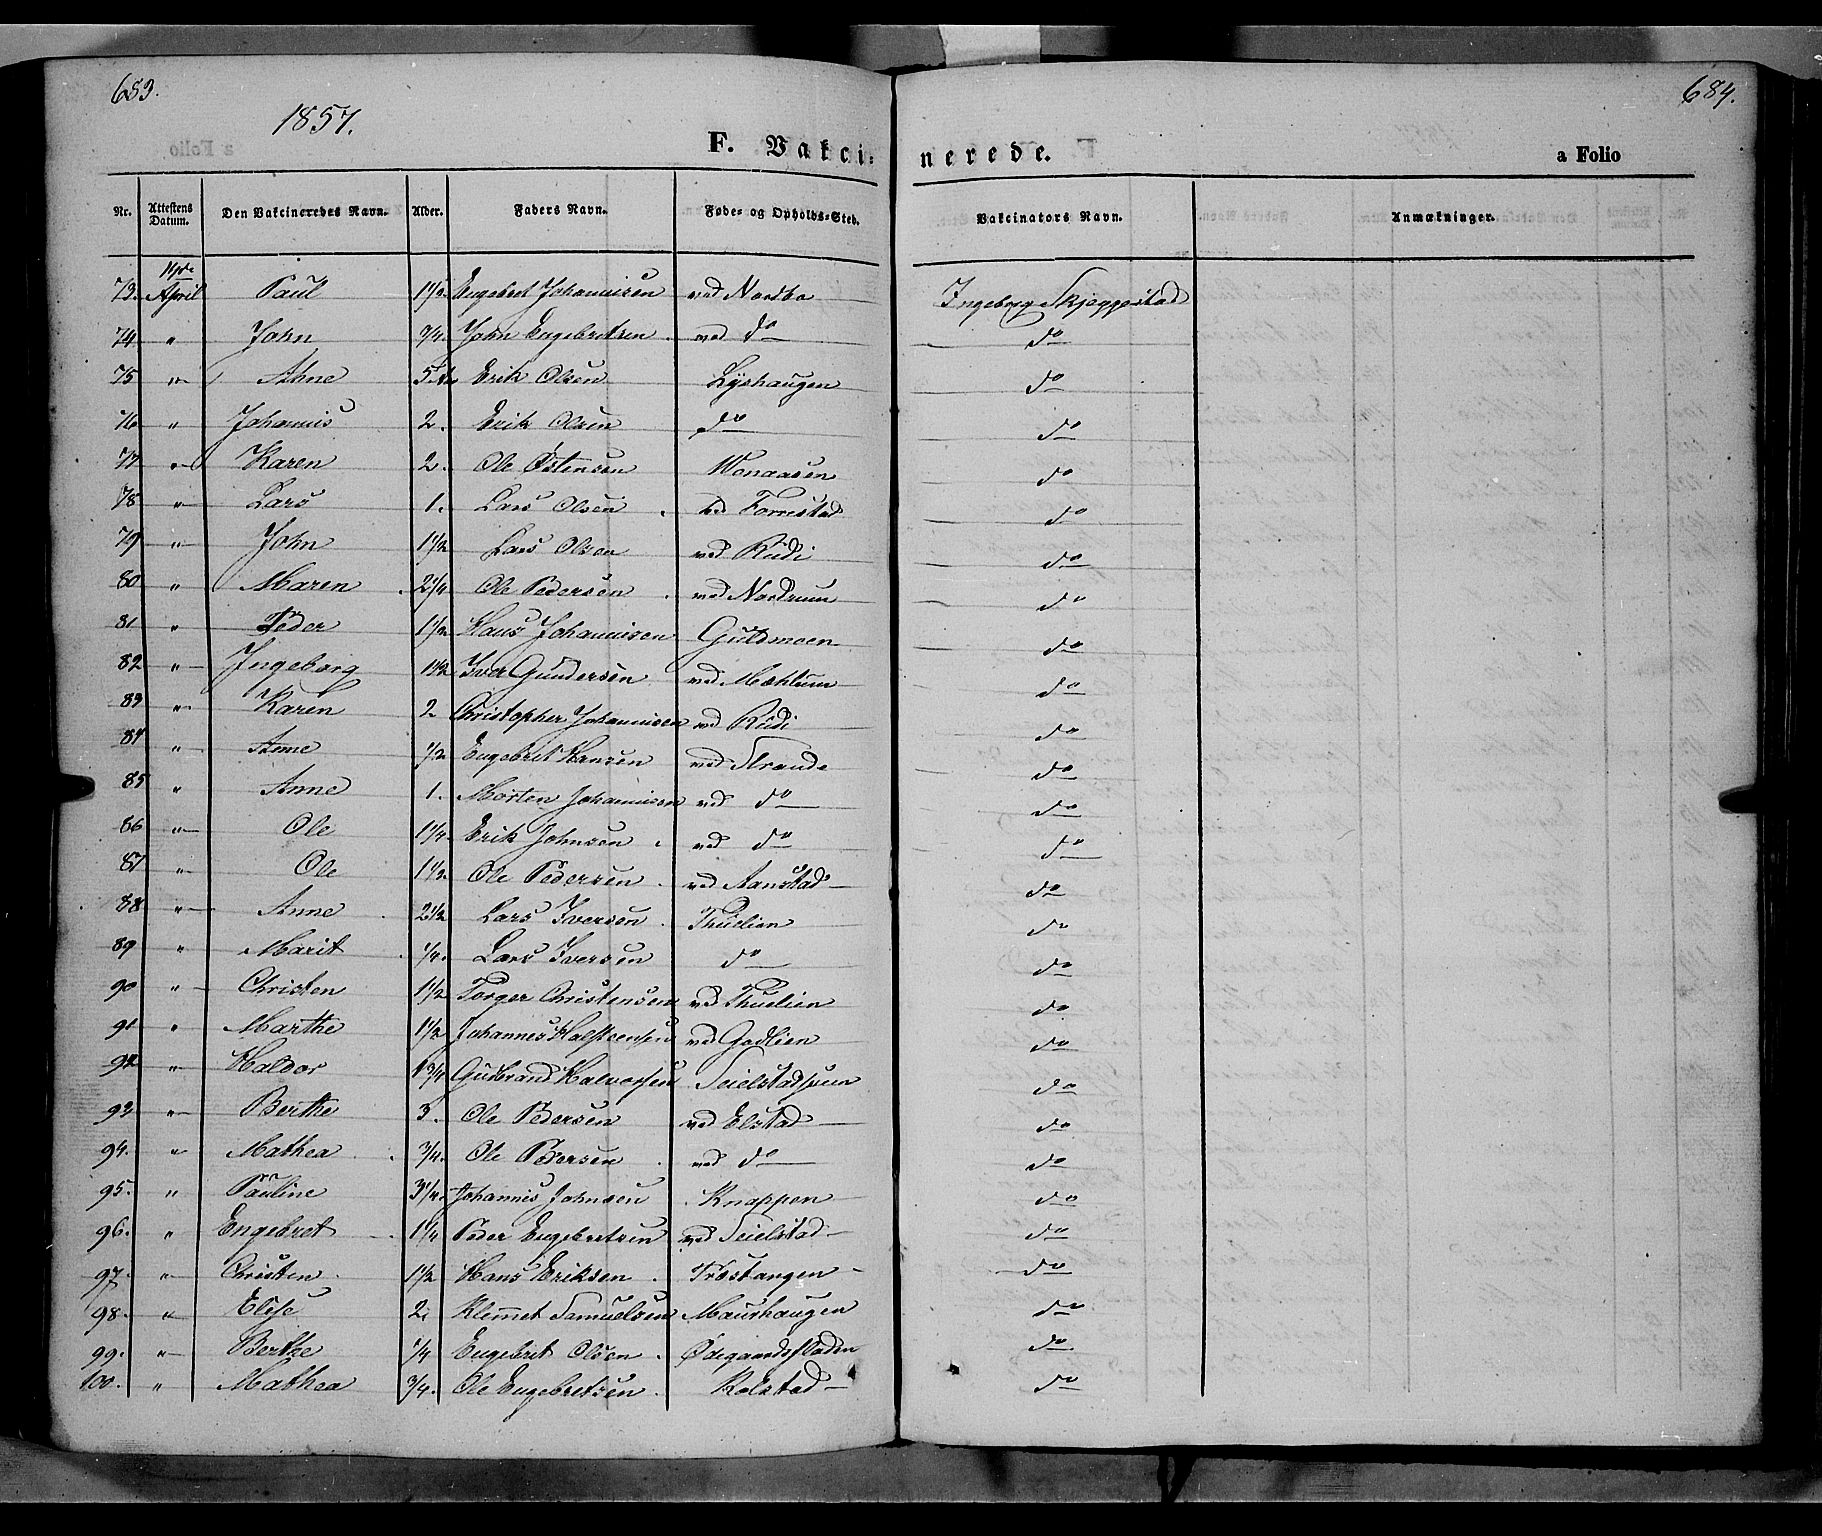 683.
684.
1857.
F. Vakcinerede.
a Folio
Nr. Attestens Datum. Den Vakcineredes Navn. Alder. Faders Navn. Føde- og Opholds-Sted. Vakcinators Navn. Anmærkninger.
73. April Paul 1 1/2 Engebret Johannisen ved Nordbo Ingeborg Skjeggestad
74 " John 3/4. John Engebretsen ved do do
75 " Ahne Erik Olsen Lyshaugen do
76 " Johannis 2. Erik Olsen do do
77 " Karen 2. Ole Østensen do
78 " Lars 1. Lars Olsen ved Forrestad do
79 " John 1 1/2 Lars Olsen ved Rudi do
80 " Maren 2 1/4 Ole Pedersen ved Nordrum do
81 " Peder 1 1/2 Hans Johannisen Guldmoen do
82 " Ingeborg 1 1/2 Iver Gundersen ved Mæhlum do
83 " Karen 2 Christopher Johannisen ved Rudi do
84 " Anne 1/2 Engebret Hansen ved Strande do
85 " Anne 1. Morten Johannisen ved do do
86 " Ole 1 1/4. Erik Johnsen ved do do
87 " Ole 1 1/2. Ole Pedersen ved Aanstad do
88 " Anne 2 1/2 Lars Iversen Thulien do
89 " Marit 1/4. Lars Iversen do do
90 " Christen 1 1/2 Torger Christensen ved Thulien do
91 " Marthe 1 1/2 Johannes Halsteensen ved Godlien do
92 " Haldor 1 3/4 Gudbrand Halvorsen do
93 " Berthe 3. Ole Pedersen ved Elstad do
94. " Mathea 3/4. Ole Pedersen ved do do
95. " Pauline 3 1/4. Johannis Johnsen Knappen do
96. " Engebret 1 1/4 Peder Engebretsen ved Seielstad do
97. " Christen 1 1/2 Hans Eriksen Træstangen do
98. " Elise 2. Klemmet Samuelsen Maurhaugen do
99. " Berthe 1/4 Engebret Olsen Ødegaardsladen do
100. " Mathea 3/4. Ole Engebretsen Rolstad do